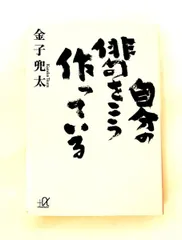 自分の
俳句をこう
作っている
金子兜太
+α